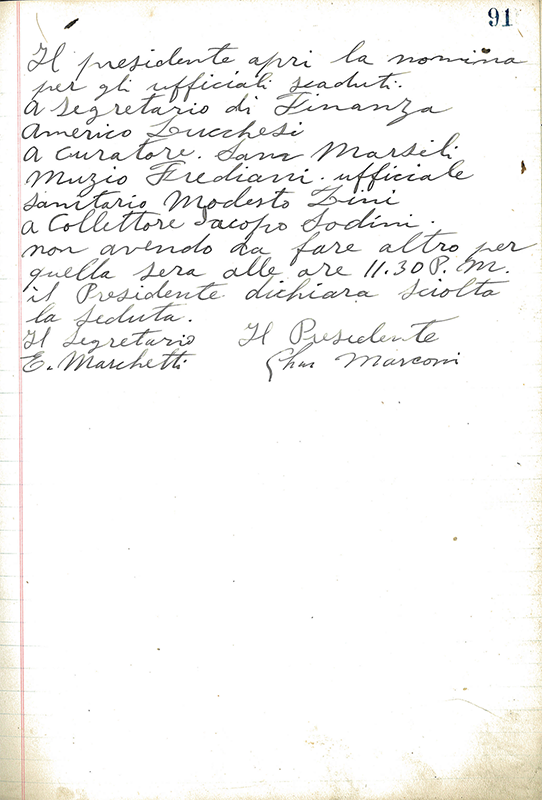 91
Il presidente apri la nomina
per gli ufficiali scaduti.
a Segretario di Finanza
Americo Lucchesi
a curatore. Sam Marsili
Muzio Frediani. ufficiale
sanitario Modesto Lini
a Collettore Jacopo Sodini.
non avendo da fare altro per
quella sera alle ore 11.30 P.M.
il Presidente dichiara sciolta
la seduta.
Il Segretario Il Presidente
E. Marchetti Chas Marconi